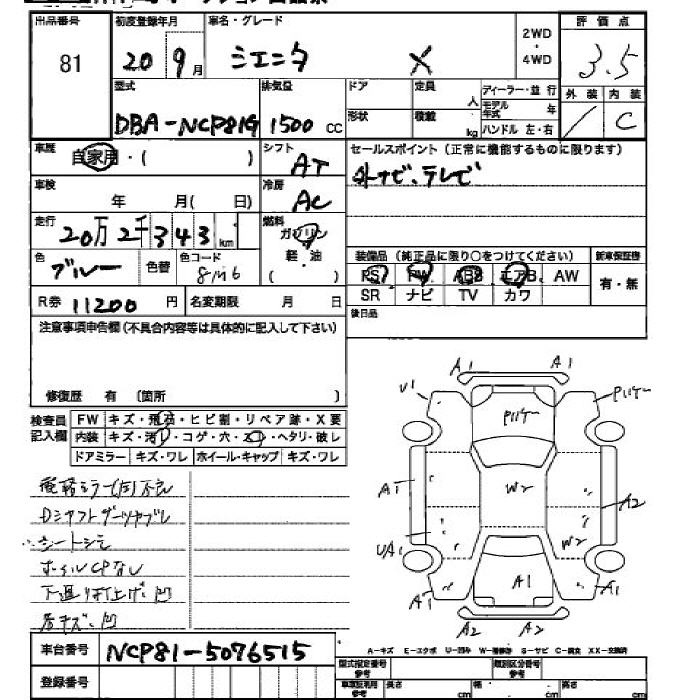 出品番号 初度登録年月 車名・グレード 2WD ・ 4WD 評価点
81 20 9月 シエンタ X 3.5
型式 排気量 ドア 定員 人 ディーラー・並行 外装 内装
DBA-NCP81G 1500 cc 形状 積載 kg モデル年式 年 ハンドル 左・右 / C
車歴 自家用・( ) シフト AT セールスポイント(正常に機能するものに限ります)
車検 年 月( 日) 冷房 AC 外ナビ、テレビ
走行 20万2千343km 燃料 ガソリン 軽・油 ( )
色 ブルー 色替 色コード 8M6 装備品(純正品に限り○をつけてください) 新車保証書
PS PW ABS エアB AW 有・無
R券 11200円 名変期限 月 日 SR ナビ TV カワ
注意事項申告欄(不具合内容等は具体的に記入して下さい) 後日品
修復歴 有 (箇所 )
検査員記入欄 FW キズ・飛石・ヒビ割・リペア跡・X要
内装 キズ・汚れ・コゲ・穴・ ・ヘタリ・破レ
ドアミラー キズ・ワレ ホイール・キャップ キズ・ワレ
A1 A1
U1
W2
A2
UA1 W2
A1 A1 A1
A2 A2
電格ミラー(右)不良
Dシャフトブーツヤブレ
シートシミ
ホイルCPなし
下廻り 凹
キズ・凹
A-キズ E-エクボ U-凹み W-補修跡 S-サビ C-腐食 XX-交換済
車台番号 NCP81-5076515
型式指定番号 参考 類別区分番号 参考
登録番号 車庫証明用 参考 長さ cm 幅 cm 高さ cm